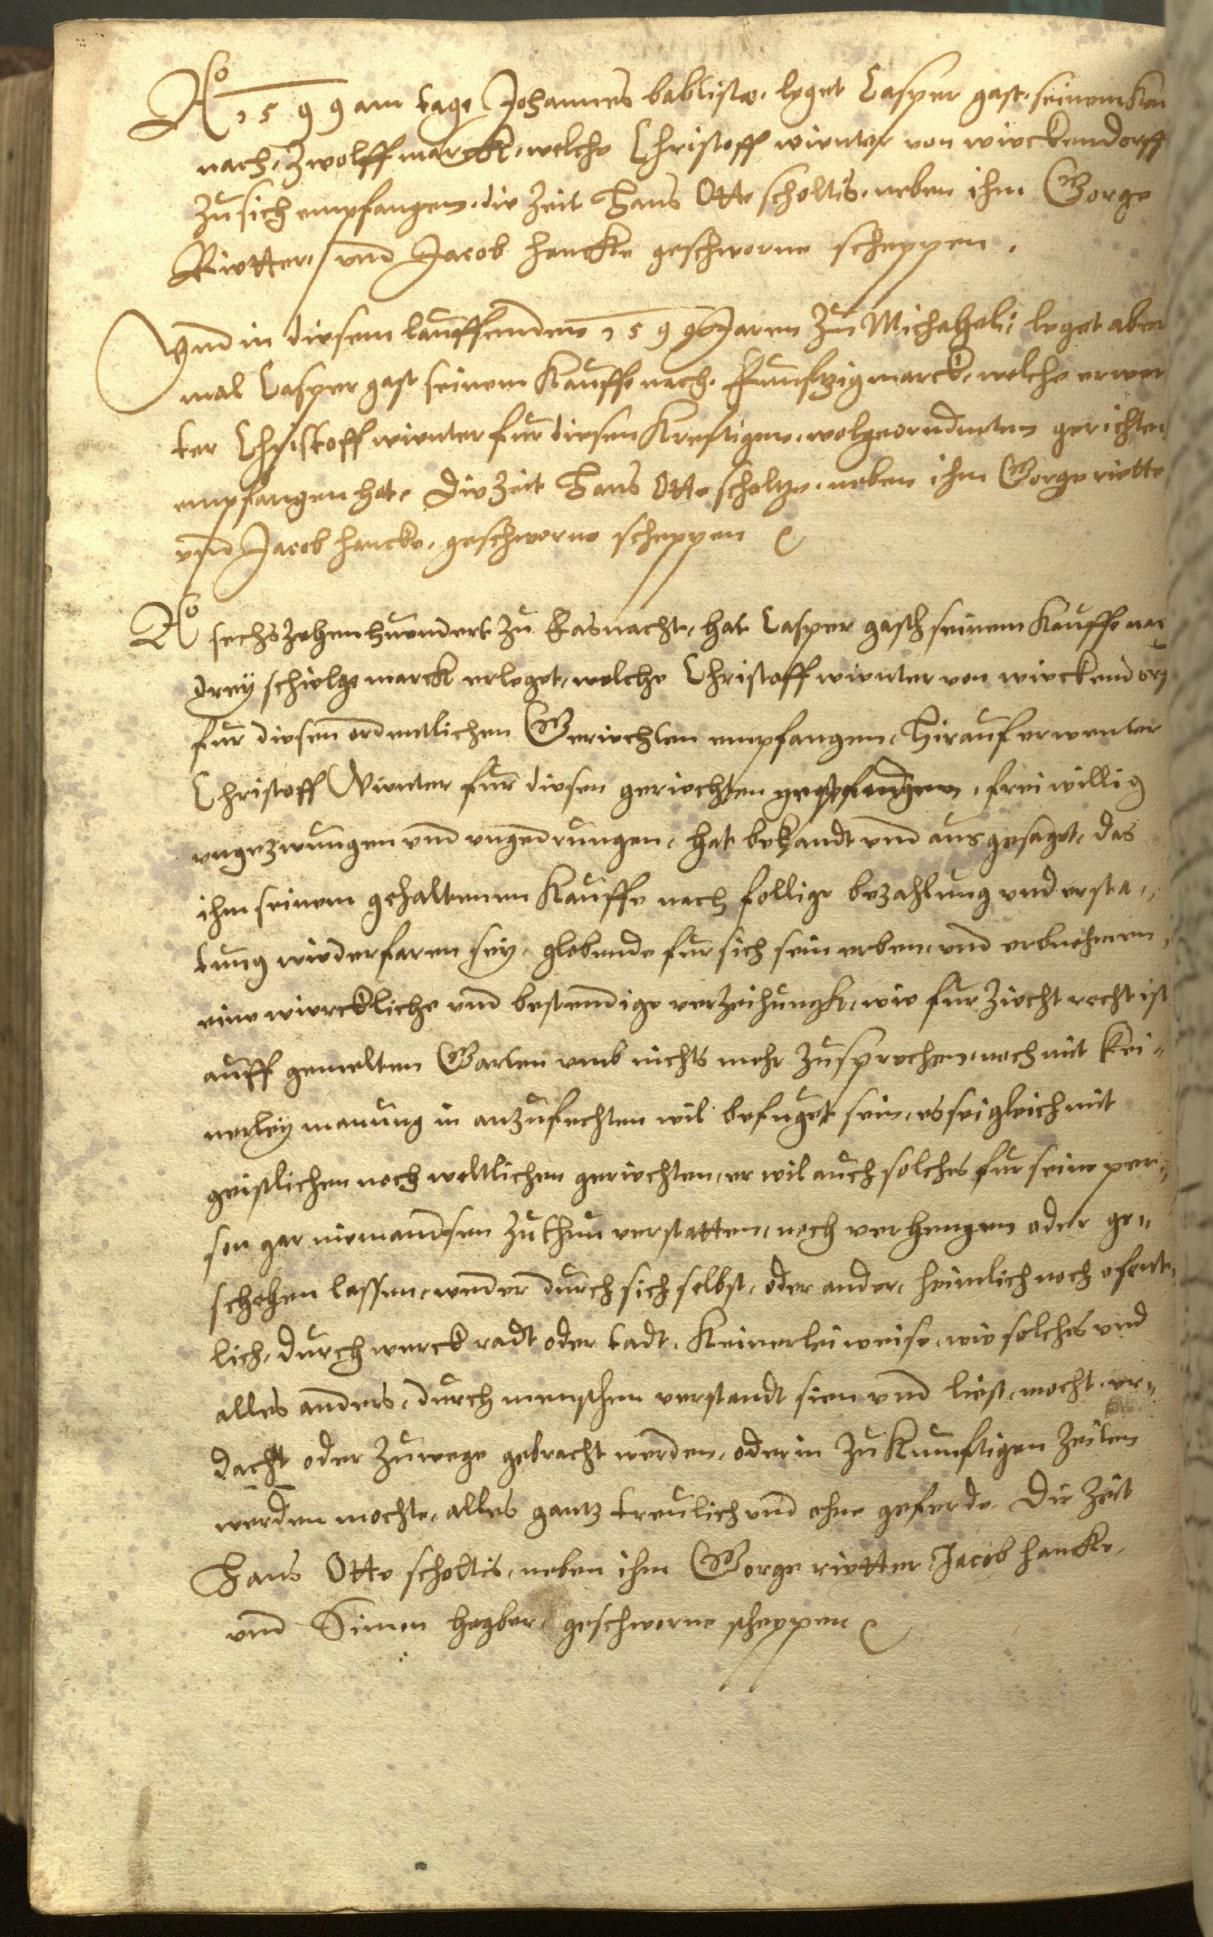 Ao 1599 am tage Johannes bablistæ, leget Casper gast, seinem Kau
nach, zwolff marckt, welche Christoff winter von wirckendorff
zu sich empfangen, die Zeit Hans Otte scholtis, neben ihm George
Rietter, und Jacob hancke geschworne scheppen.
Vnd in diesem lauffenden 1599 Jaren zu Michaheli, leget aber
mal Casper gast seinem Kauffe nach, Funfzig marck, welche erwen
ter Christoff winter fur diesen Krefftigen, wolgeorndneten gerichten
empfangen hat, Die Zeit Hans Otte scholtze, neben ihm Gorge riette
vnd Jacob hancke, geschworne scheppen
Ao sechszehenhundert zu Fasnacht, hat Casper gasth seinem Kauffe nac
drey schielge marckt erleget, welche Christoff winter von wirckendorf
fur diesen ordentlichen Gerichten empfangen, Hirauf erwenter
Christoff Winter fur diesen gerichten, freiwillig
ungezwungen vnd vngedrungen, hat bekandt vnd ausgesaget, das
ihm seinem gehaltenen Kauffe nach follige bezahlung vnd ersta-
tung wiederfaren sey, globende fur sich sein erben, vnd erbnehmen,
eine wirckliche vnd bestendige verzeihungk, wie fur Ziecht recht ist
auff gemelten Garten vmb nichts mehr zusprechen, noch mit kei-
nerley manung in anzufechten wil befuget sein, es sei gleich mit
geistlichen noch weltlichen gerichten, er wil auch solches fur seine per-
son gar niemandsen zuthun verstatten, noch verhengen oder ge-
schehen lassen, weder durch sich selbst, oder ander, heimlich noch ofent-
lich, durch werck radt oder tadt, Keinerlei weise, wie solches vnd
alles anders, durch menschen verstandt sien vnd liest, mocht er-
dacht oder zuwege gebracht werden, oder in zukunfftigen zeiten
werden mochte, alles gantz treulich vnd ohne geferde. Die Zeit
Hans Otte scholtis, neben ihm George rietter, Jacob hancke,
vnd Simon hegber, geschworne scheppen